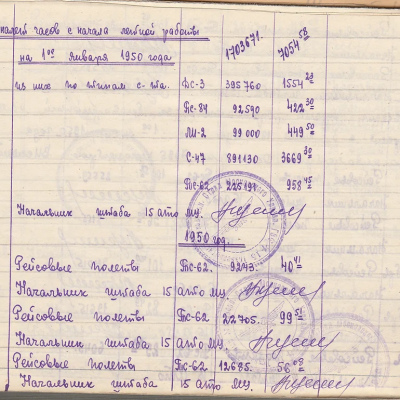 налет часов с начала летной работы
на 1ое января 1950 года 1703671. 7054 58
из них по типам с-та. Дс-3 395760 1554 28
Пс-84 92590 422 30
Ли-2 99000 449 50
С-47 891130 3669 30
Пс-62 225191 958 45
Начальник штаба 15 ато МЦ.
1950 год.
Рейсовые полеты Пс-62. 9243. 40 41
Начальник штаба 15 ато МЦ.
Рейсовые полеты Пс-62 22705. 99 51
Начальник штаба 15 ато МЦ.
Рейсовые полеты Пс-62 12685. 56 08
Начальник штаба 15 ато МЦ.